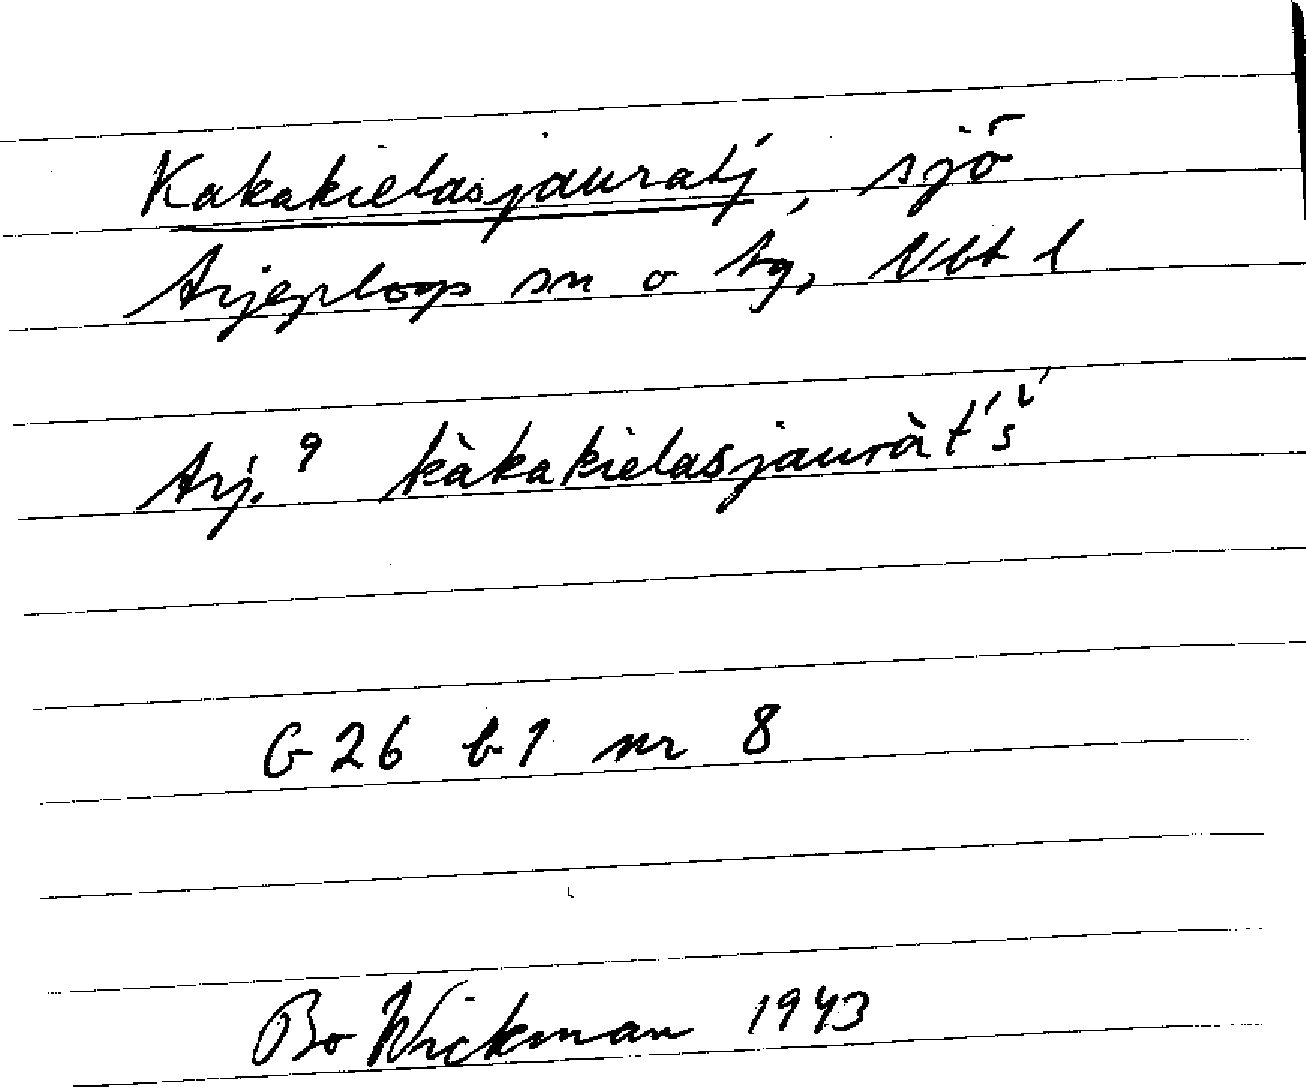 Kakakielasjauratj, sjö
Arjeplogs sn o tg, Nbt l
Arj. 9 kàkakielasjauràt's'
G 26 b 1 nr 8
Bo Wickman 1943